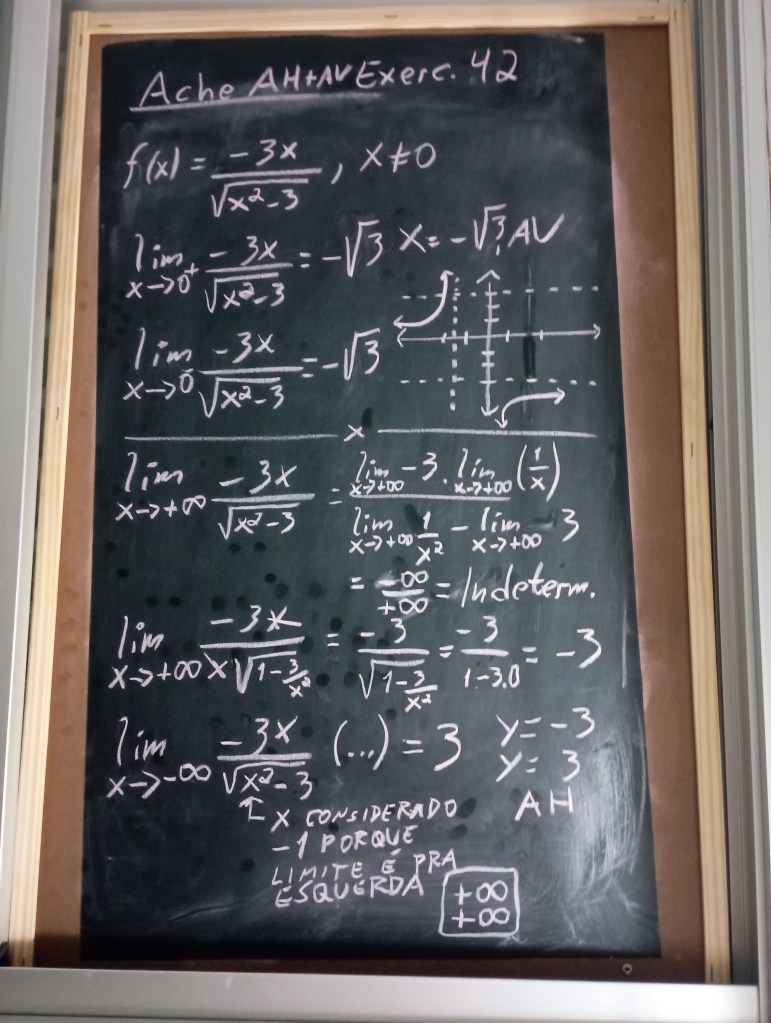 Ache AH+AV Exerc. 42
f(x) = -3x / √(x²-3) , x≠0
lim x→0⁺ -3x / √(x²-3) = -√3 x = -√3, AV
lim x→0⁻ -3x / √(x²-3) = -√3
x
lim x→+∞ -3x / √(x²-3) = lim x→+∞ -3 . lim x→+∞ (1/x) / lim x→+∞ 1/x² - lim x→+∞ 3
= -∞ / +∞ = Indeterm.
lim x→+∞ -3x / x√(1-3/x²) = -3 / √(1-3/x²) = -3 / 1-3.0 = -3
lim x→-∞ -3x / √(x²-3) (...) = 3 y = -3
y = 3
AH
↑ x CONSIDERADO
-1 PORQUE
LIMITE É PRA
ESQUERDA
+∞
+∞